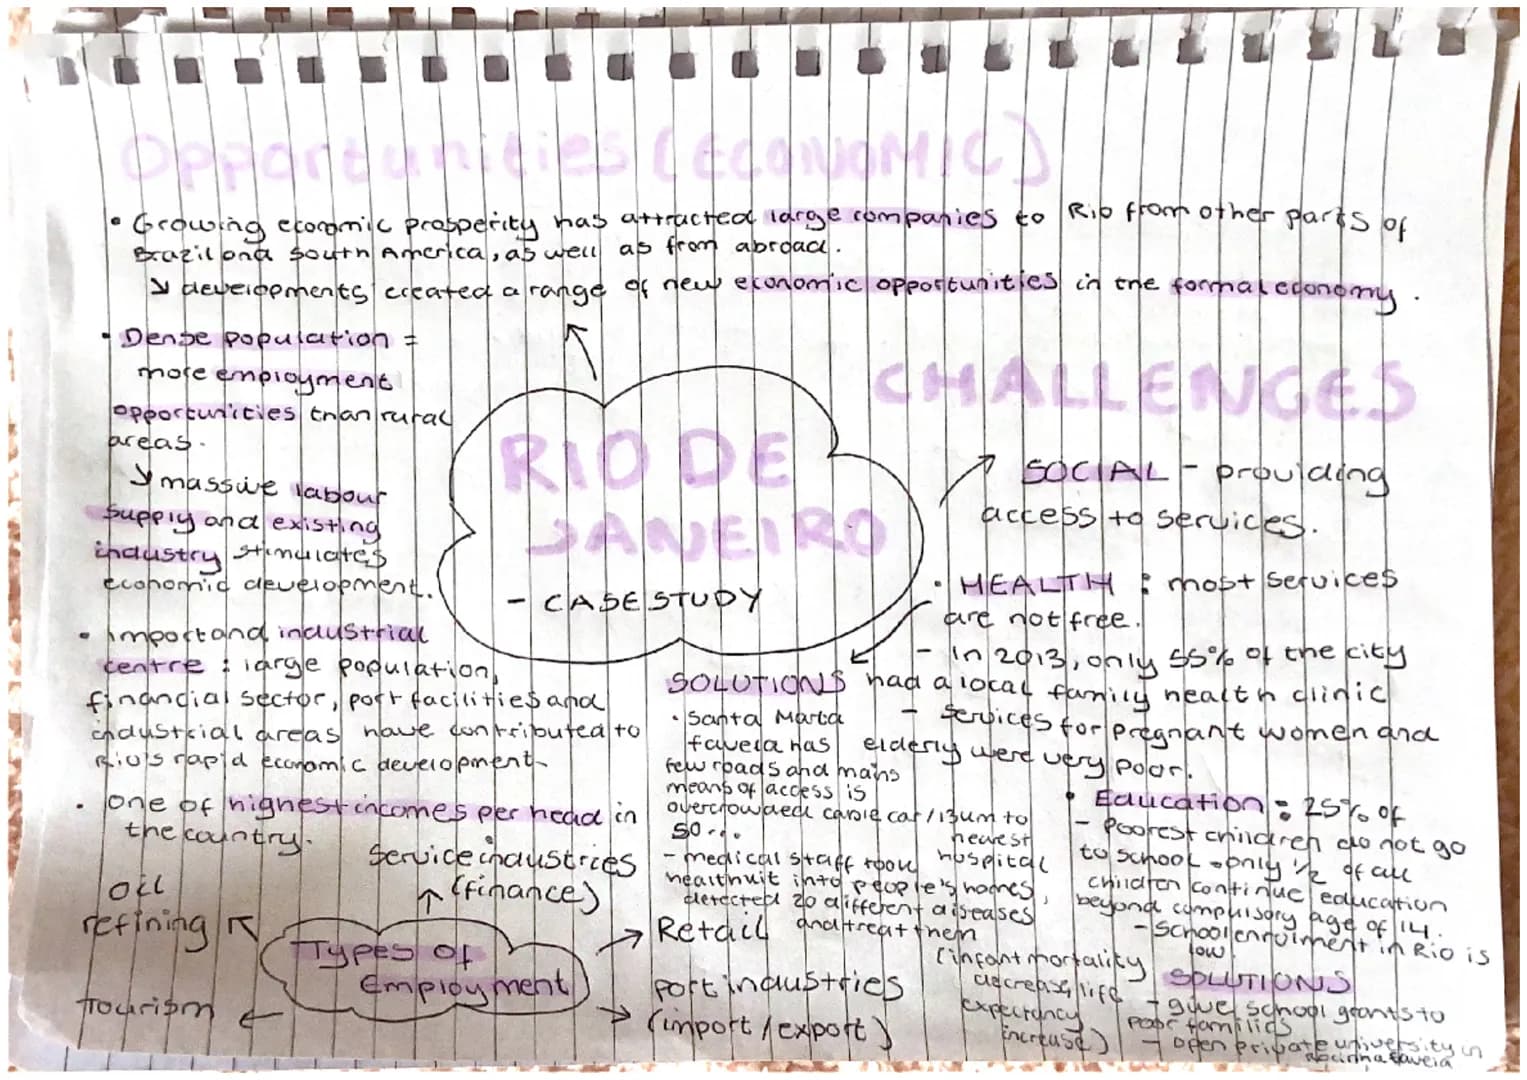 Opportunities (ECONOMIC)
• Growing economic prosperity has attracted large companies to Rio from other parts of
Brazil and South America, as well as from abroad.
↘ developments created a range of new economic opportunities in the formal economy.
• Dense population =
more employment
opportunities than rural
areas.
↘ massive labour
supply and existing
industry stimulates
economic development.
• Importand industrial
centre : large population,
financial sector, port facilities and
industrial areas have contributed to
Rio's rapid economic development.
• one of highest incomes per head in
the country.
RIO DE
JANEIRO
- CASE STUDY
CHALLENGES
SOCIAL - providing
access to services.
• HEALTH : most services
are not free.
- In 2013, only 55% of the city
had a local family health clinic
- services for pregnant women and
elderly were very poor.
SOLUTIONS
• Santa Marta
favela has
few roads and mains
means of access is
overcrowded cable car/13km to
nearest
hospital
so...
- medical staff took
health kit into people's homes,
detected 20 different diseases
and treat them
(infant mortality
decrease, life
expectancy
increase)
• Education : 25% of
- Poorest children do not go
to school - only 1/2 of all
children continue education
beyond compulsory age of 14.
- School enrolment in Rio is
low
SOLUTIONS
- give school grants to
poor families
- open private university in
Rocinha favela
Types of
Employment
service industries
(finance)
oil
refining
Tourism
Retail
port industries
(import/export)